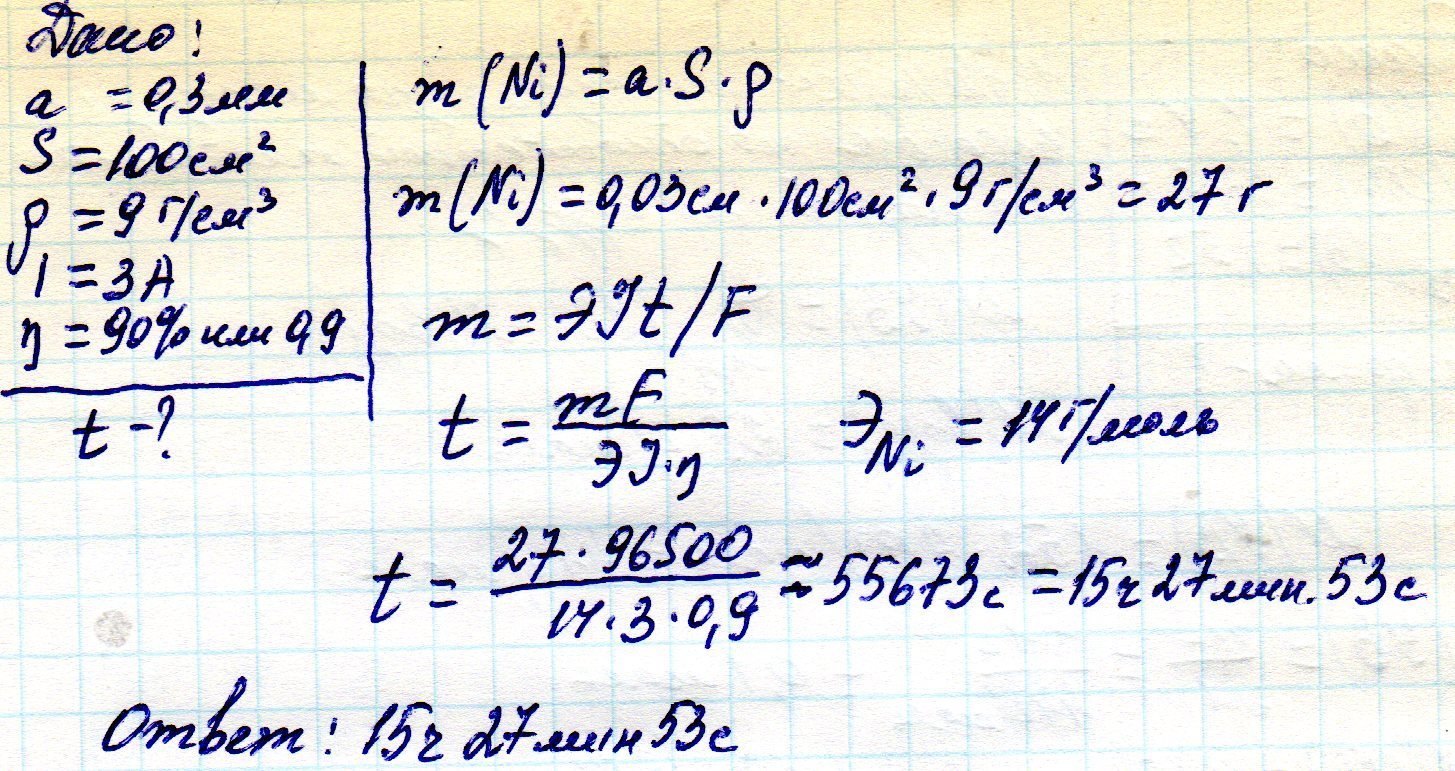 Дано:
a = 0,3 мм
S = 100 см²
ρ = 9 г/см³
I = 3 А
η = 90% или 0,9
t - ?
m (Ni) = a · S · ρ
m (Ni) = 0,03 см · 100 см² · 9 г/см³ = 27 г
m = ЭIt/F
t = mF / ЭI·η Э_Ni = 14 г/моль
t = 27 · 96500 / 14 · 3 · 0,9 ≈ 55673 с = 15 ч 27 мин. 53 с
Ответ: 15 ч 27 мин 53 с